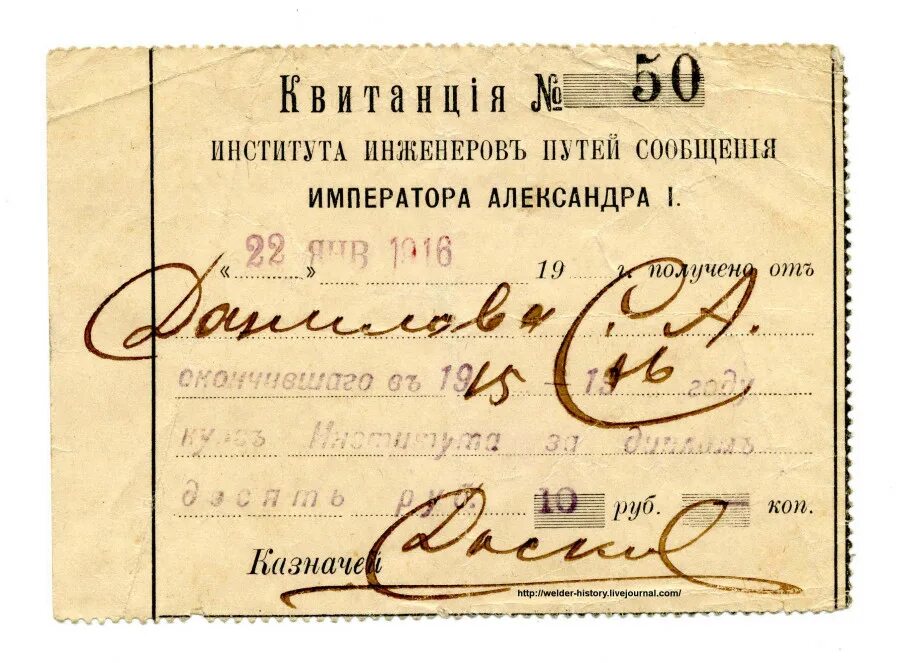 Квитанція № 50
ИНСТИТУТА ИНЖЕНЕРОВЪ ПУТЕЙ СООБЩЕНІЯ
ИМПЕРАТОРА АЛЕКСАНДРА I.
„ 22 “ ЯНВ 1916 19 г. получено отъ
Данилова С. А.
окончившаго въ 1915 – 1916 году
курсъ Института за дипломъ
десять руб. 10 руб. — коп.
Казначей
http://welder-history.livejournal.com/